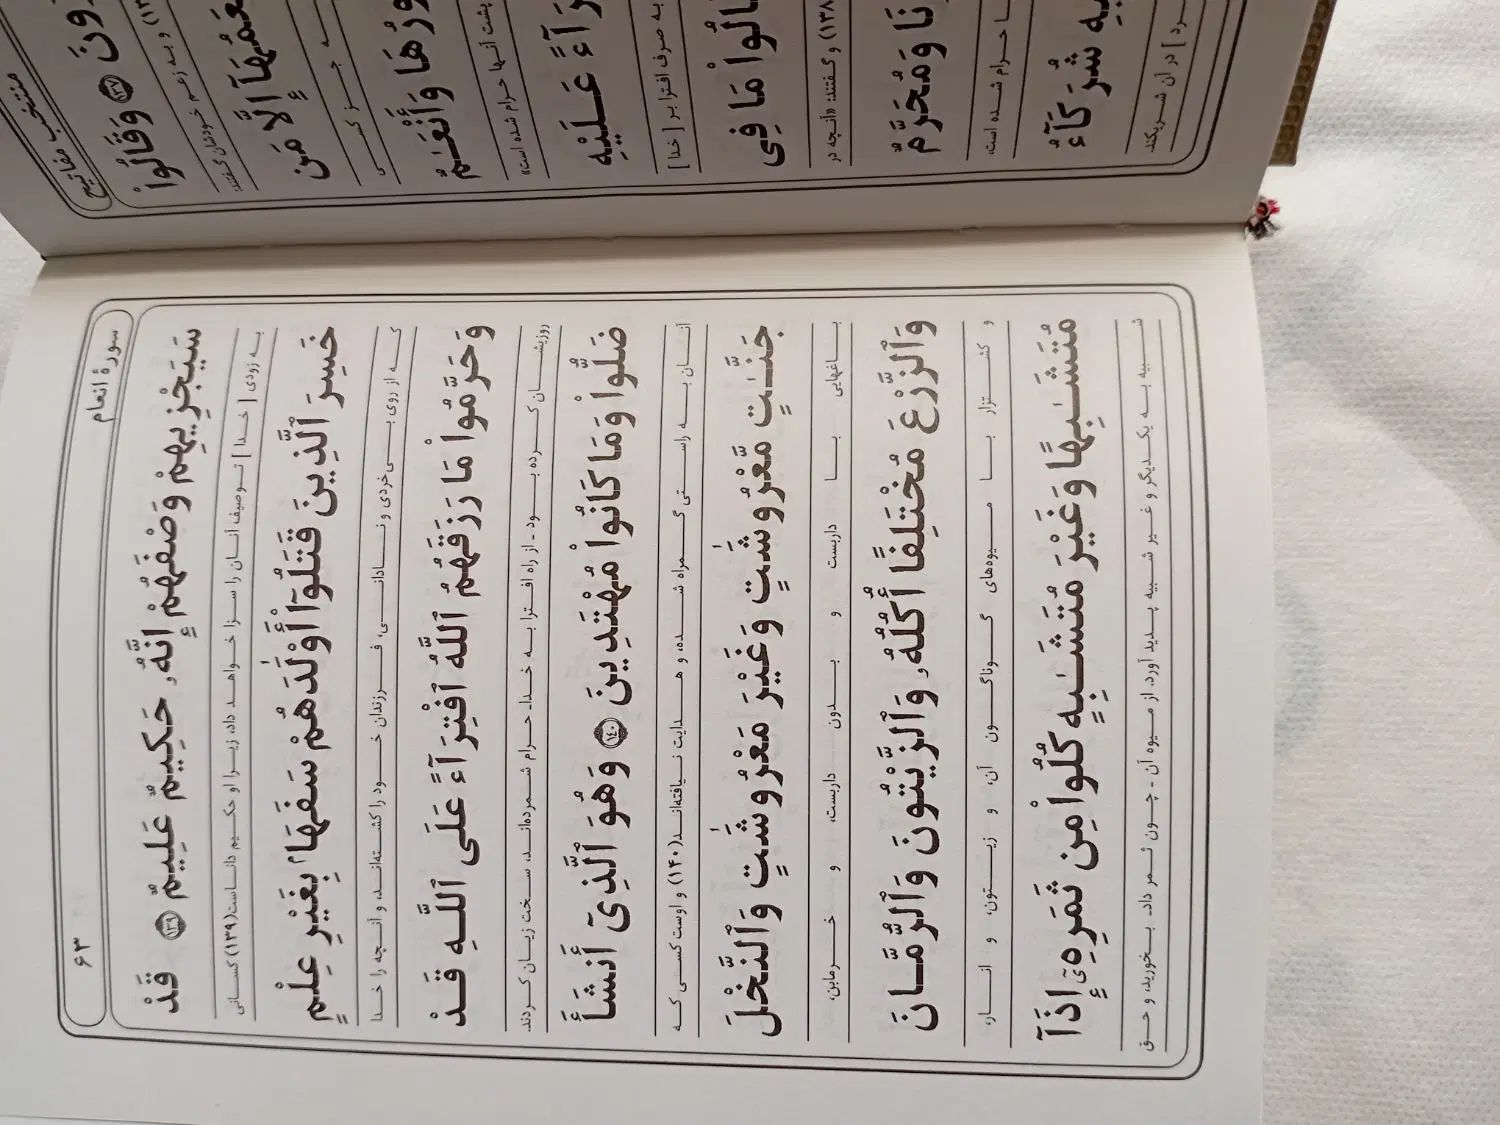 منتخب مفاتیح
ونَ ﴿١٣٧﴾ وَقَالُوا۟
و به زعم خودشان گفتند:
إِلَّا مَن
جز کسی
وَأَنْعَـٰمٌ
پشت آنها حرام شده است»
عَلَيْهِ
به صرف افترا بر [ خدا ]
مَا فِى
(۱۳۸) و گفتند: «آنچه در
نَا وَمُحَرَّمٌ
حرام شده است،
شُرَكَآءُ
در آن شریکند.
سورهٔ انعام
۶۳
سَيَجْزِيهِمْ وَصْفَهُمْ إِنَّهُۥ حَكِيمٌ عَلِيمٌ ﴿١٣٩﴾ قَدْ
به زودی [ خدا ] توصیف آنان را سزا خواهد داد، زیرا او حکیم داناست(۱۳۹) کسانی
خَسِرَ ٱلَّذِينَ قَتَلُوٓا۟ أَوْلَـٰدَهُمْ سَفَهَۢا بِغَيْرِ عِلْمٍ
که از روی بی‌خردی و نادانی، فرزندان خود را کشته‌اند، و آنچه را خدا
وَحَرَّمُوا۟ مَا رَزَقَهُمُ ٱللَّهُ ٱفْتِرَآءً عَلَى ٱللَّهِ قَدْ
روزیشان کرده بود ـ از راه افترا به خدا ـ حرام شمرده‌اند، سخت زیان کردند.
ضَلُّوا۟ وَمَا كَانُوا۟ مُهْتَدِينَ ﴿١٤٠﴾ وَهُوَ ٱلَّذِىٓ أَنشَأَ
آنان به راستی گمراه شده، و هدایت نیافته‌اند(۱۴۰) و اوست کسی که
جَنَّـٰتٍ مَّعْرُوشَـٰتٍ وَغَيْرَ مَعْرُوشَـٰتٍ وَٱلنَّخْلَ
باغهایی با داربست و بدون داربست، و خرمابن،
وَٱلزَّرْعَ مُخْتَلِفًا أُكُلُهُۥ وَٱلزَّيْتُونَ وَٱلرُّمَّانَ
و کشتزار با میوه‌های گوناگون آن، و زیتون، و انار،
مُتَشَـٰبِهًا وَغَيْرَ مُتَشَـٰبِهٍ كُلُوا۟ مِن ثَمَرِهِۦٓ إِذَآ
شبیه به یکدیگر و غیر شبیه پدید آورد. از میوه آن ـ چون ثمر داد ـ بخورید، و حق